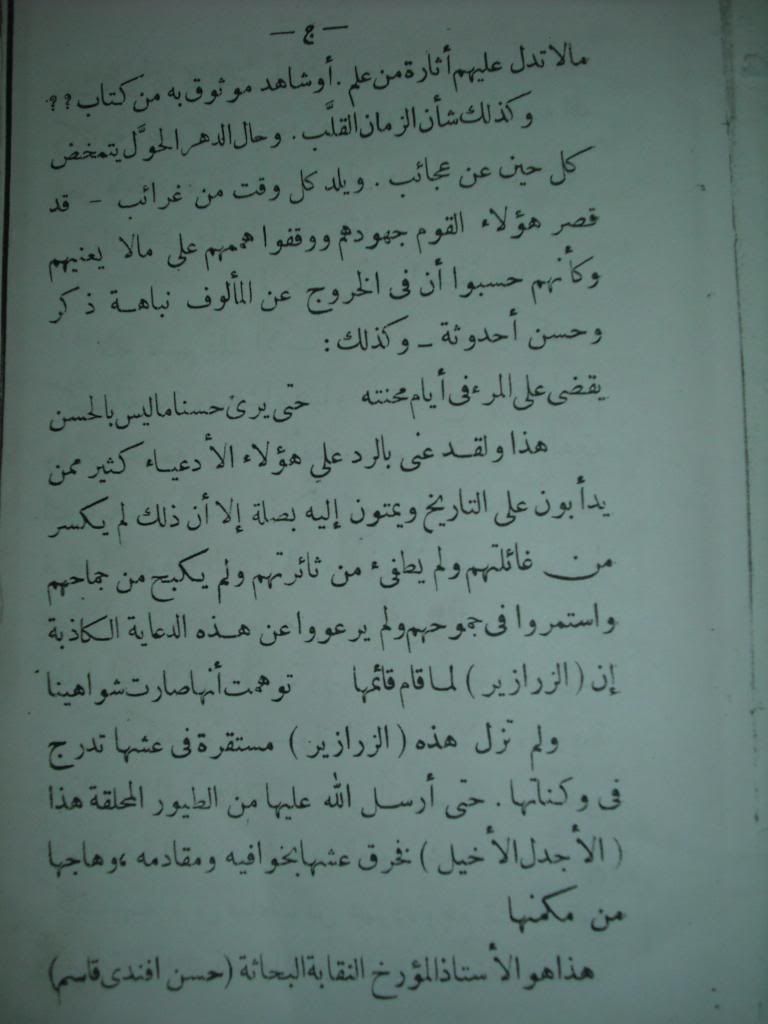 — ج —
مالا تدل عليهم أثارة من علم . أو شاهد موثوق به من كتاب ؟؟
وكذلك شأن الزمان القلَّب . وحال الدهر الحوَّل يتمخض
كل حين عن عجائب . ويلد كل وقت من غرائب – قد
قصر هؤلاء القوم جهودهم ووقفوا هممهم على مالا يعنيهم
وكأنهم حسبوا أن فى الخروج عن المألوف نباهة ذكر
وحسن أحدوثة – وكذلك :
يقضى على المرء فى أيام محنته حتى يرى حسنا ما ليس بالحسن
هذا ولقد عنى بالرد على هؤلاء الأدعياء كثير ممن
يدأبون على التاريخ ويمتون إليه بصلة إلا أن ذلك لم يكسر
من غائلتهم ولم يطفىء من ثائرتهم ولم يكبح من جماحهم
واستمروا فى جموحهم ولم يرعووا عن هذه الدعاية الكاذبة
إن ( الزرازير ) لما قام قائمها توهمت أنها صارت شواهينا
ولم تزل هذه ( الزرازير ) مستقرة فى عشها تدرج
فى وكناتها . حتى أرسل الله عليها من الطيور المحلقة هذا
( الأجدل الأخيل ) فخرق عشها بخوافيه ومقادمه ، وهاجها
من مكمنها
هذا هو الأستاذ المؤرخ النقابة البحاثة ( حسن افندى قاسم )